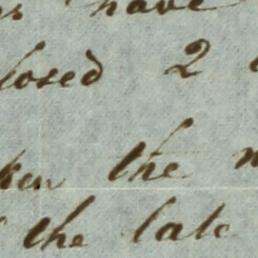 have
losed 2
ken the
the late